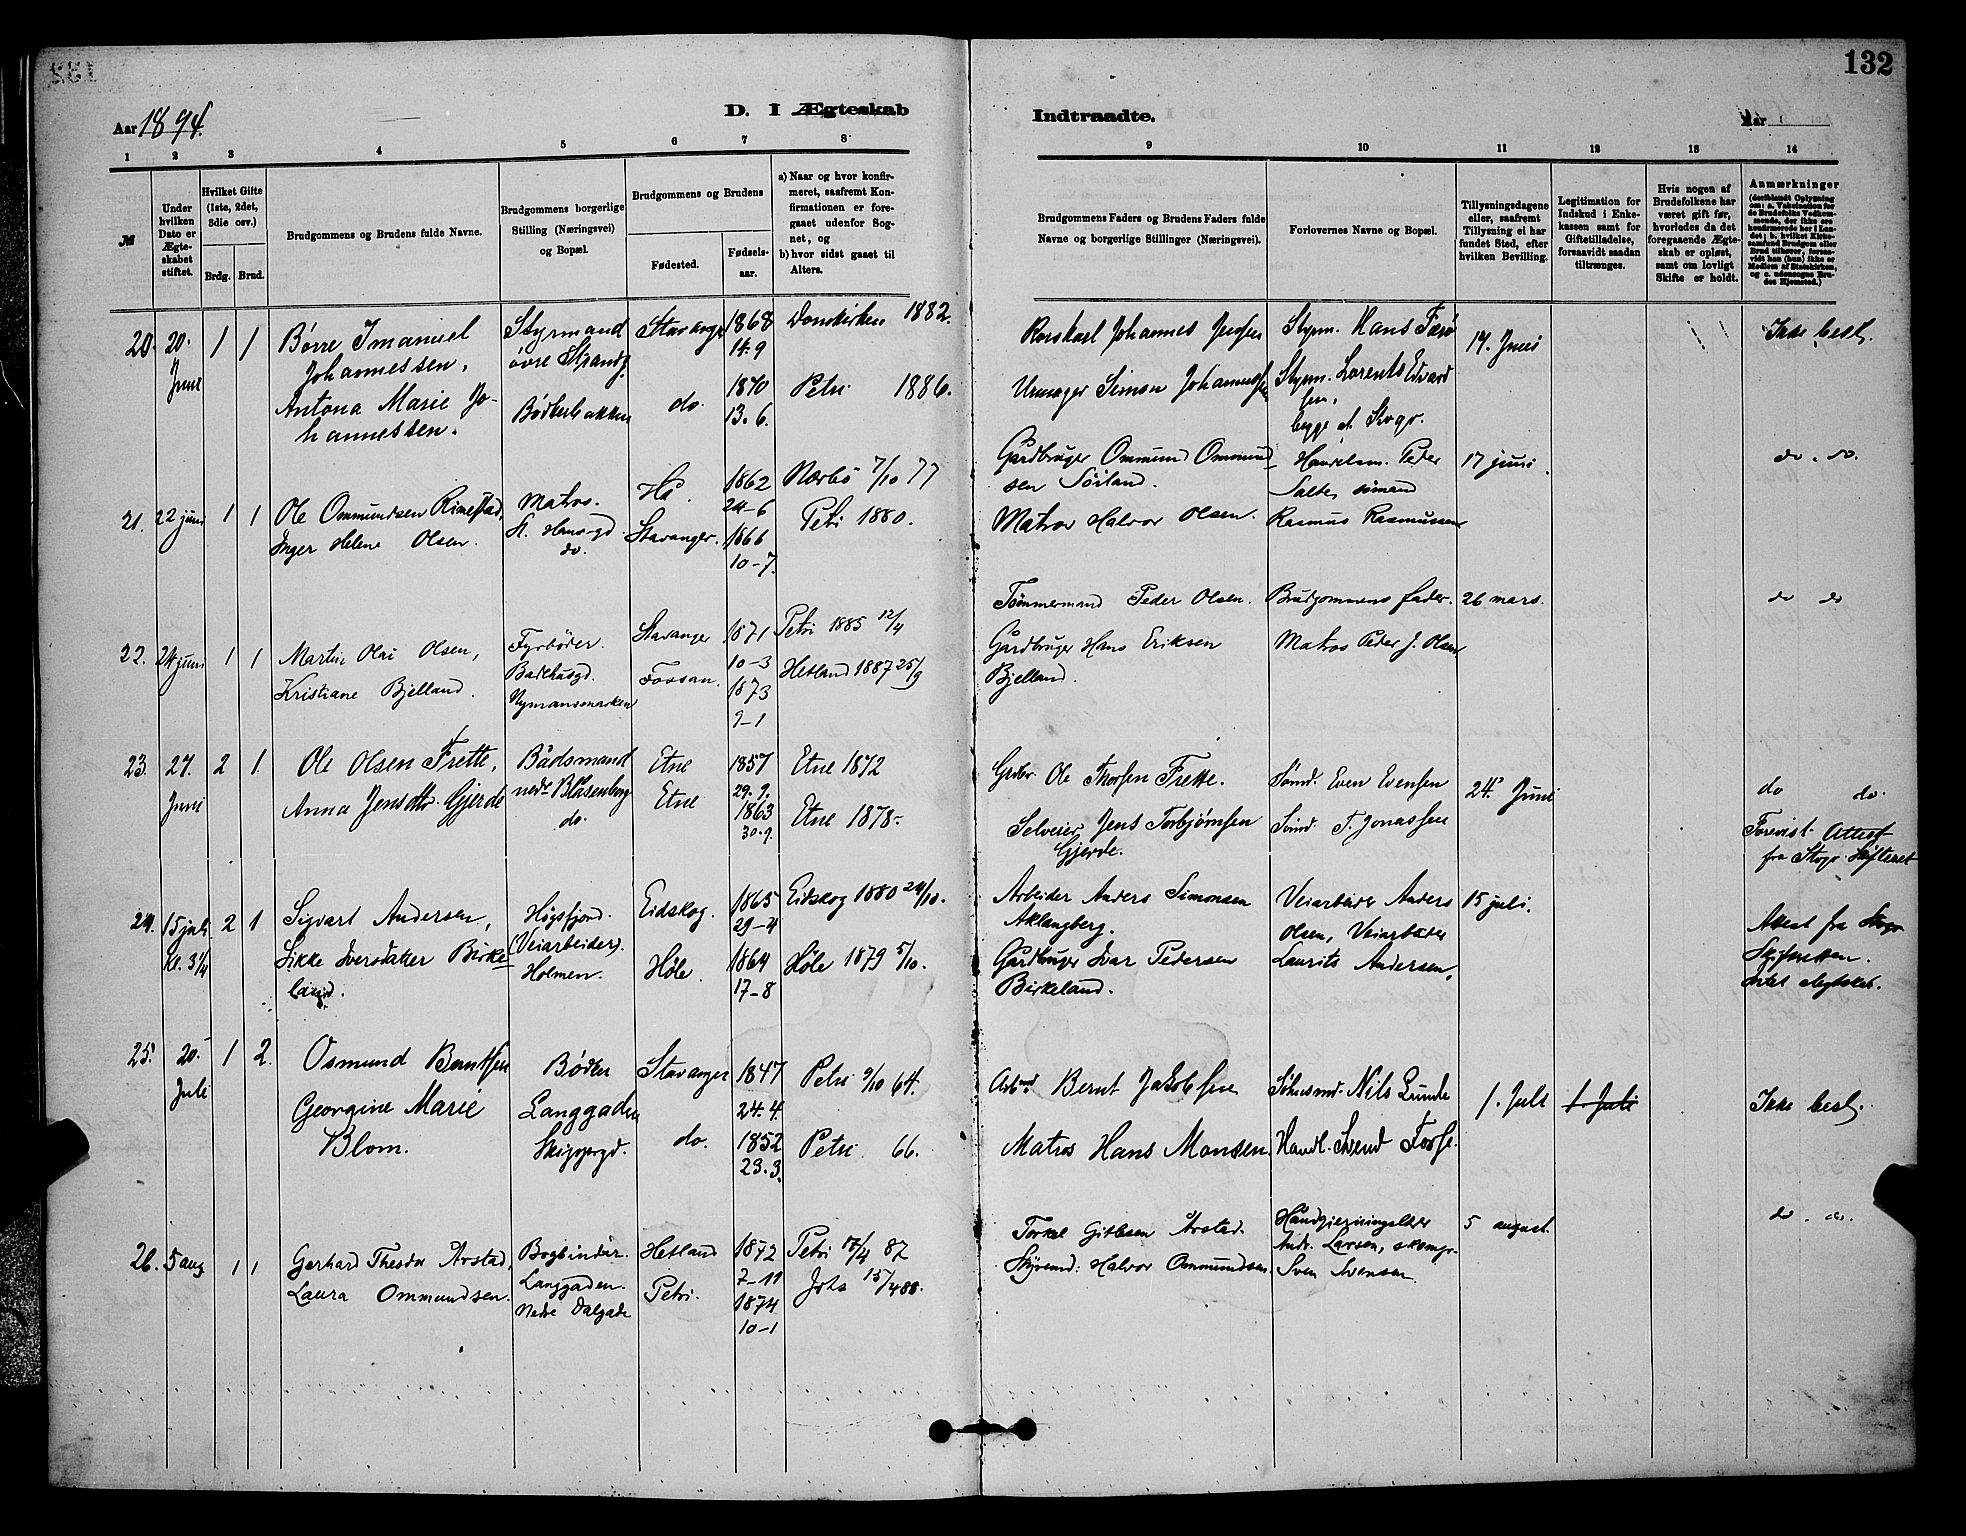 132
Aar 1894.
D. I Ægteskab
Indtraadte.
Aar
1 2 3 4 5 6 7 8
9 10 11 12 13 14
№
Under hvilken Dato er Ægteskabet stiftet.
Hvilket Gifte (1ste, 2det, 3die osv.)
Brdg. Brud.
Brudgommens og Brudens fulde Navne.
Brudgommens borgerlige Stilling (Næringsvei) og Bopæl.
Brudgommens og Brudens
Fødested. Fødsels-aar.
a) Naar og hvor konfirmeret, saafremt Konfirmationen er foregaaet udenfor Sognet, og
b) hvor sidst gaaet til Alters.
Brudgommens Faders og Brudens Faders fulde Navne og borgerlige Stillinger (Næringsvei).
Forlovernes Navne og Bopæl.
Tillysningsdagene eller, saafremt Tillysning ei har fundet Sted, efter hvilken Bevilling.
Legitimation for Indskud i Enkekassen samt for Giftetilladelse, forsaavidt saadan tiltrænges.
Hvis nogen af Brudefolkene har været gift før, hvorledes da det foregaaende Ægteskab er opløst, samt om lovligt Skifte er holdt.
Anmærkninger
20. 20. Juni 1 1
Børre Imanuel
Johannessen,
Antona Marie Johannessen.
Styrmand
øvre Strandg.
Bødkerbakken
Stavanger
do.
1868
14.9
1870
13.6.
Domkirken 1882.
Petri 1886.
Rorskarl Johannes Jensen
Urmager Simon Johannessen
Styrm. Hans Farø
Styrm. Lorents Edvardsen,
begge af Stvgr.
17. Juni
Ikke besl.
21. 22 juni 1 1
Ole Ommundsen Rimestad,
Inger Helene Olsen.
Matros.
St. Hansgd
do.
Hå.
Stavanger.
1862
24-6
1866
10-7.
Nærbø 7/10 77
Petri 1880.
Gardbruger Ommund Ommundsen Sørland.
Matros Halvor Olsen.
Handelsm. Peder
Salte, sømand
Rasmus Rasmussen
17 juni.
do. do.
22. 24 juni 1 1
Martin Olai Olsen,
Kristiane Bjelland.
Fyrbøder.
Badehusgd.
Nymansmarken
Stavanger
Fossan.
1871
10-3
1873
9-1
Petri 1885 12/4
Hetland 1887 25/9
Tømmermand Peder Olsen.
Gårdbruger Hans Eriksen
Bjelland.
Brudgommens fader.
Matros Peder J. Olsen
26 mars.
do do
23. 27. Juni 2 1.
Ole Olsen Frette,
Anna Jensdtr. Gjerde
Bådsmand
nedr Blåsenborg
do.
Etne
Etne
1857
29.9.
1863
30.9.
Etne 1872
Etne 1878.
Grdbr. Ole Thorsen Frette.
Selveier Jens Torbjørnsen
Gjerde.
Sømd. Even Evensen
Sømd. T. Jonassen
24. Juni
do do.
Forevist Attest
fra Stvgr. Skifteret
24. 15 juli Kl. 3¼ 2 1
Sigvart Andersen,
Sikke Iversdatter Birkeland.
Høgsfjord.
(Veiarbeider).
Holmen.
Eidskog.
Høle.
1865
29-4
1864
17-8
Eidskog 1880 24/10.
Høle 1879 5/10.
Arbeider Anders Simonsen
Aklangberg.
Gårdbruger Ivar Pedersen
Birkeland.
Veiarbeider Anders
Olsen, Veiarbeider
Laurits Andersen.
15 juli.
Attest fra Stvgr
Skifteretten.
Intet slegtskab.
25. 20. Juli 1 2.
Osmund Berntsen
Georgine Marie
Blom.
Bødker
Langgaden
Skippergd.
Stavanger
do.
1847
24.4.
1852
23.3.
Petri 9/10 64.
Petri 66.
Arbmd Bernt Jakobsen
Matros Hans Monsen
Skhusmd. Nils Lunde
Handl. Svend Fosse.
1. Juli
1. Juli
Ikke besl.
26. 5 aug 1 1
Gerhard Theodor Årstad,
Laura Ommundsen.
Bogbinder.
Langgaden.
Nedre Dalgade
Hetland
Petri.
1872
7-11
1874
10-1
Petri 17/4 87
Johs 15/4 88.
Torkel Gitlesen Årstad.
Styrmd: Halvor Ommundsen.
Håndgjerningslærer
Andr. Larsen, skomgr.
Sven Svensen.
5 august.
do. do.